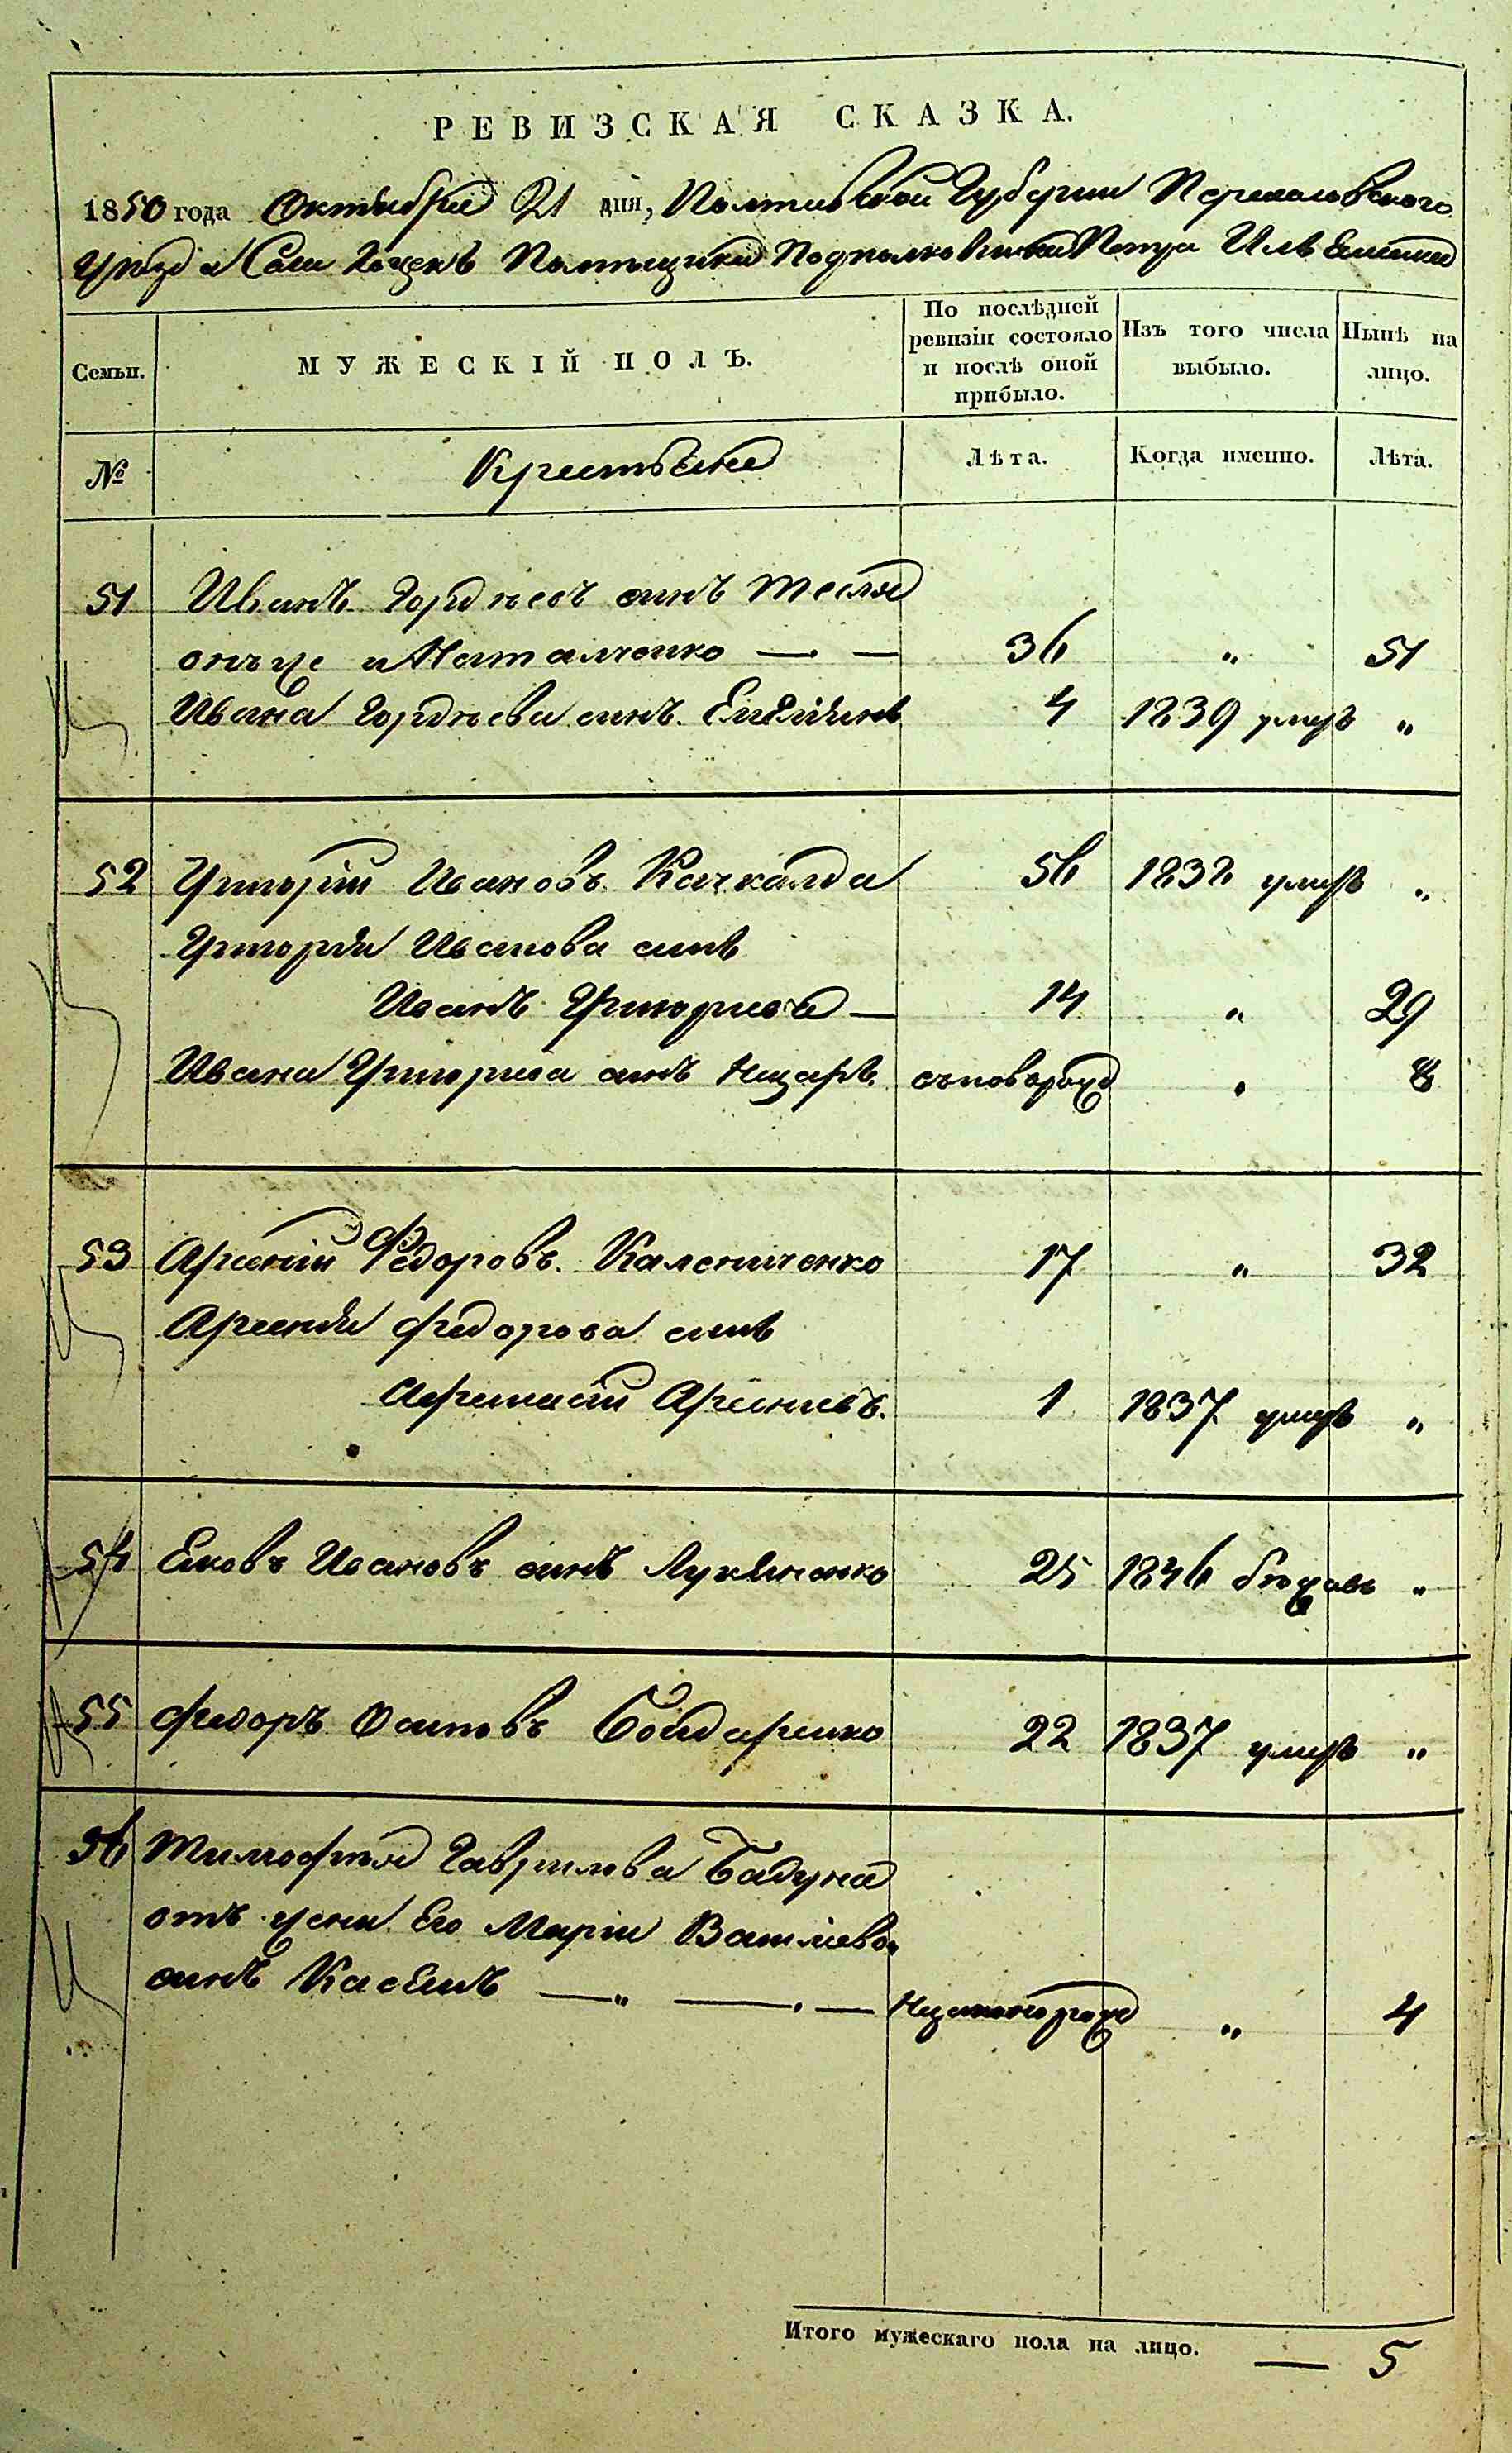 РЕВИЗСКАЯ СКАЗКА.
1850 года Октября 21 дня, Полтавской Губернии Переяловского
Уезда Села Помещика Подполковника Петра Иль
Семьи.
МУЖЕСКІЙ ПОЛЪ.
По послѣдней ревизіи состояло и послѣ оной прибыло.
Изъ того числа выбыло.
Нынѣ на лицо.
№
Крестьяне
Лѣта.
Когда именно.
Лѣта.
51 Иванъ Гордѣевъ синъ Тесля
онъ же и Наталченко — — 36 „ 51
Ивана Гордѣева синъ 4 1839 умеръ „
52 Григорій Ивановъ Качкалда 56 1838 умеръ „
Григорія Иванова синъ
Иванъ Григориевъ — 14 „ 29
Ивана Григориева синъ Назаръ 8
53 Арсеній Федоровъ Каленниченко 17 „ 32
Арсенія Федорова синъ
Афанасій Арсениевъ. 1 1837 умеръ „
54 Ековъ Ивановъ синъ Лукяненко 25 1846 бежалъ „
55 Федоръ Осиповъ Бондаренко 22 1837 умеръ „
56 Тимофея Гаврилова Бадуна
отъ жени Его Маріи Василіево
синъ Касянъ — „ — . — „ 4
Итого мужескаго пола на лицо. — 5